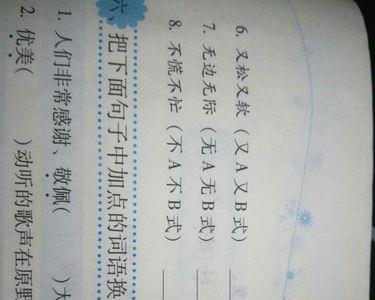 6. 又松又软（又A又B式）
7. 无边无际（无A无B式）
8. 不慌不忙（不A不B式）
六、把下面句子中加点的词语换
1. 人们非常感谢、敬佩(　　)大
2. 优美(　　)动听的歌声在原野